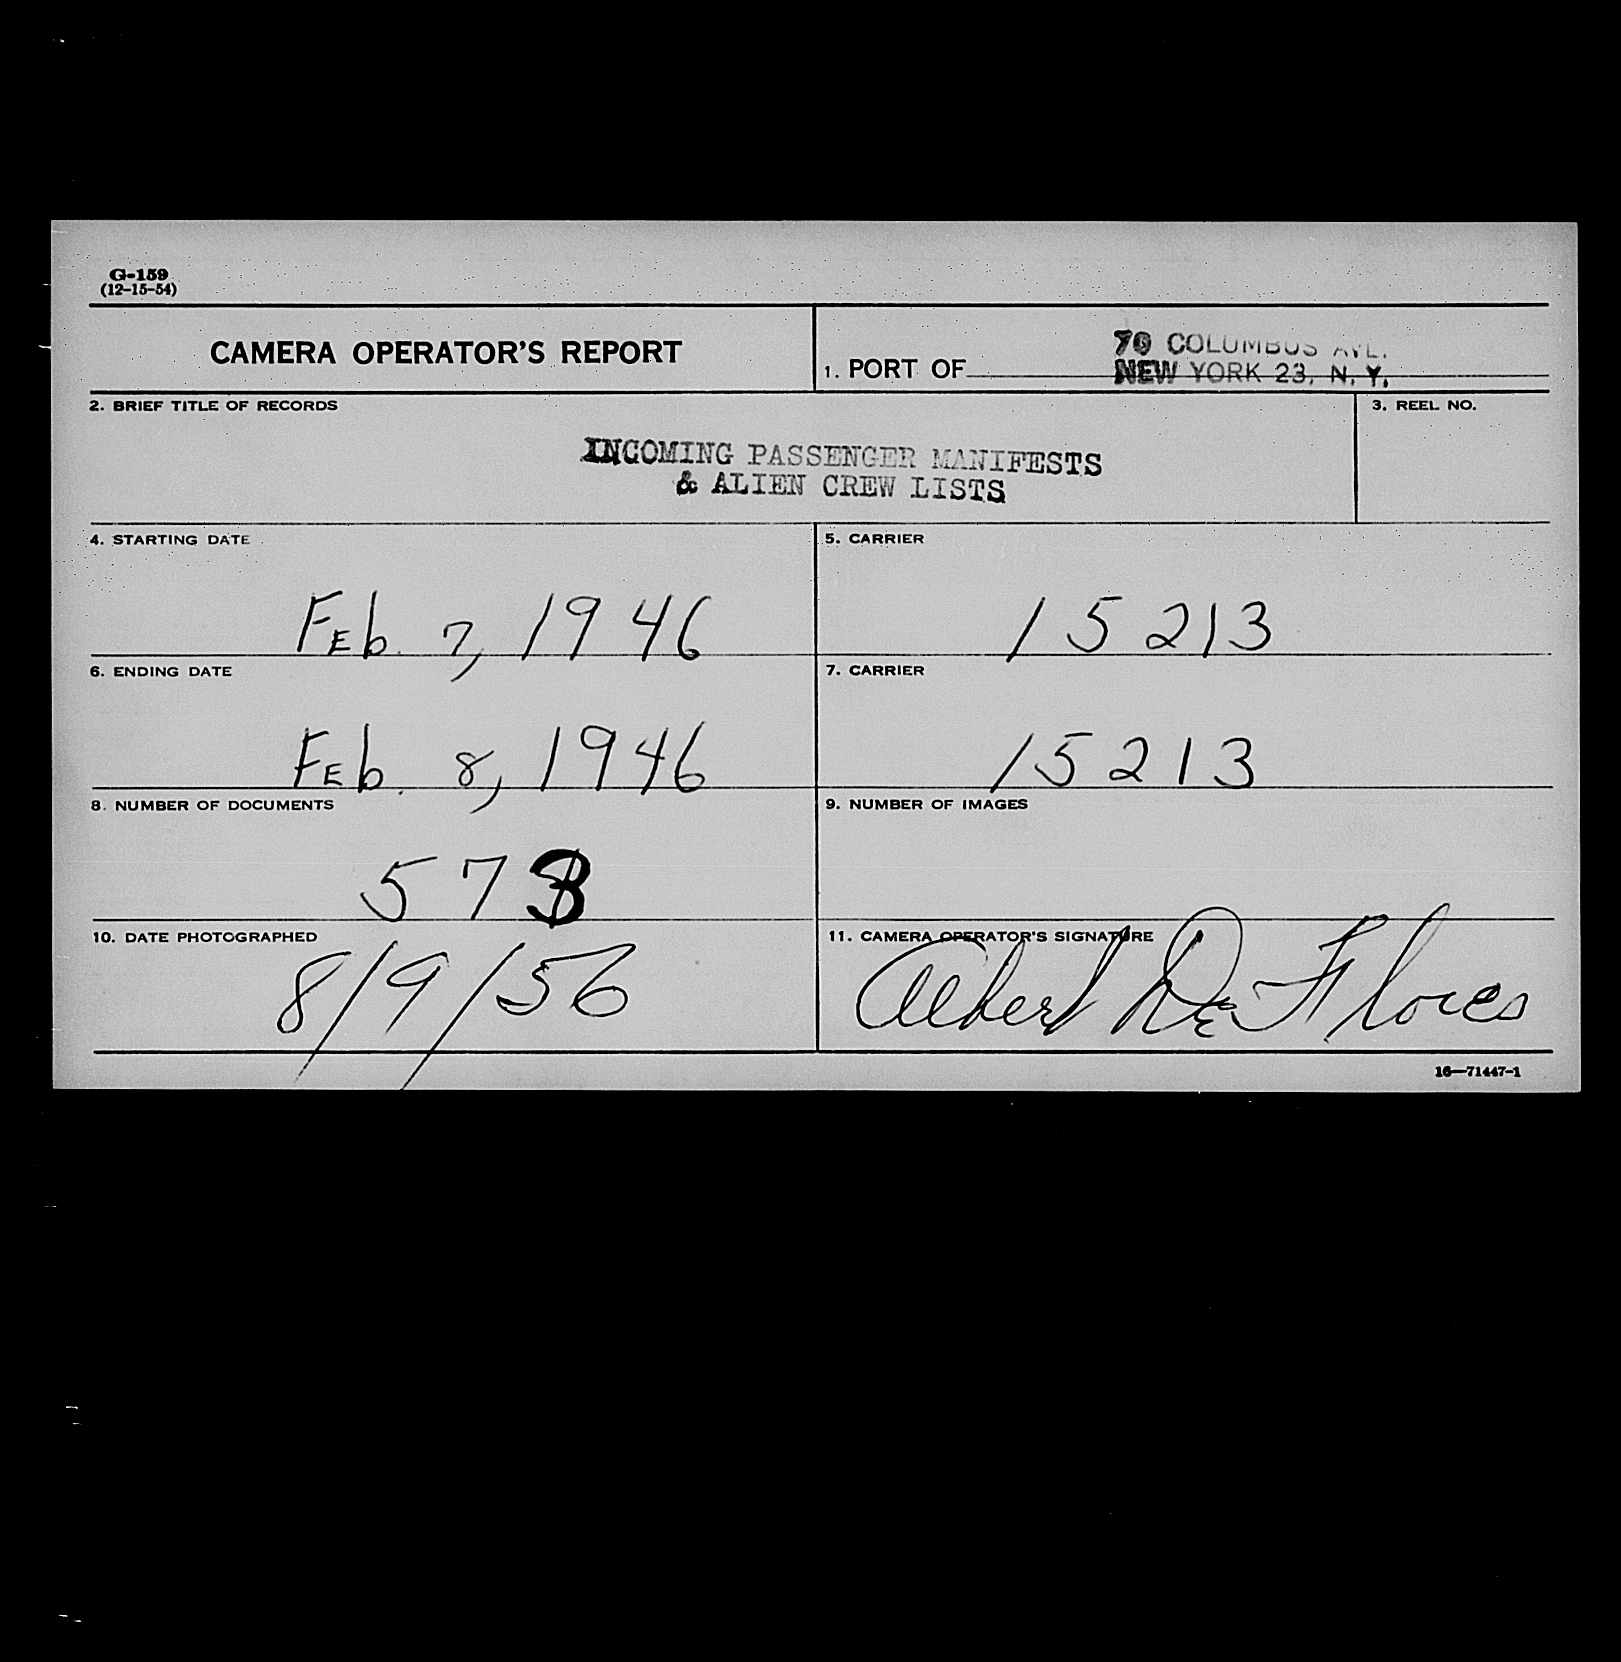 G-159
(12-15-54)
CAMERA OPERATOR'S REPORT
1. PORT OF
70 COLUMBUS AVE.
NEW YORK 23, N. Y.
2. BRIEF TITLE OF RECORDS
3. REEL NO.
INCOMING PASSENGER MANIFESTS
& ALIEN CREW LISTS
4. STARTING DATE
5. CARRIER
Feb. 7, 1946
15213
6. ENDING DATE
7. CARRIER
Feb. 8, 1946
15213
8. NUMBER OF DOCUMENTS
9. NUMBER OF IMAGES
573
10. DATE PHOTOGRAPHED
11. CAMERA OPERATOR'S SIGNATURE
8/9/56
Albert DeFlores
16—71447-1